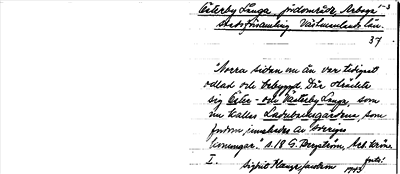 Österby Länga jordområde, Arboga 1-3
stadsförsamling Västmanlands län.
37
"Norra sidan om ån var tidigast
odlad och bebyggd. Där sträckte
sig Öster- och Västerby Länga, som
nu kallas Ladubacksgärdena, som
fordom innehades av Sveriges
konungar." s.18 G. Bergström, Arb. krön.
I.
Sigurd
1943